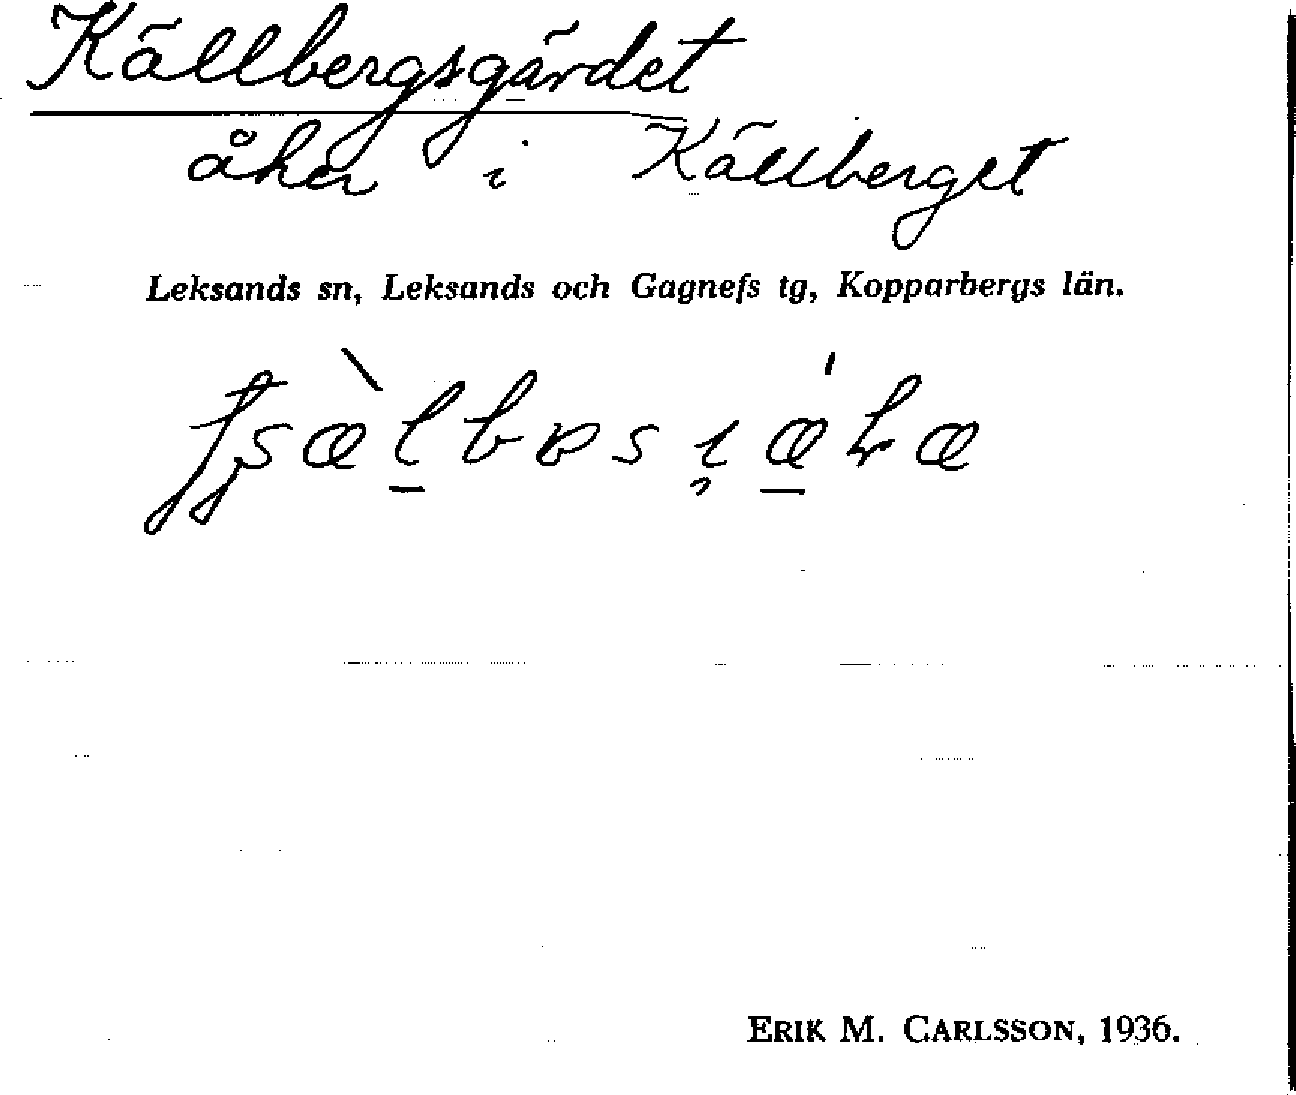 Källbergsgärdet
åker i Källberget
Leksands sn, Leksands och Gagnefs tg, Kopparbergs län.
ERIK M. CARLSSON, 1936.